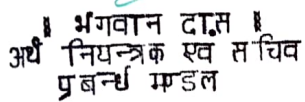 ॥ भगवान दास ॥
अर्थ नियन्त्रक एव सचिव
प्रबन्ध मण्डल